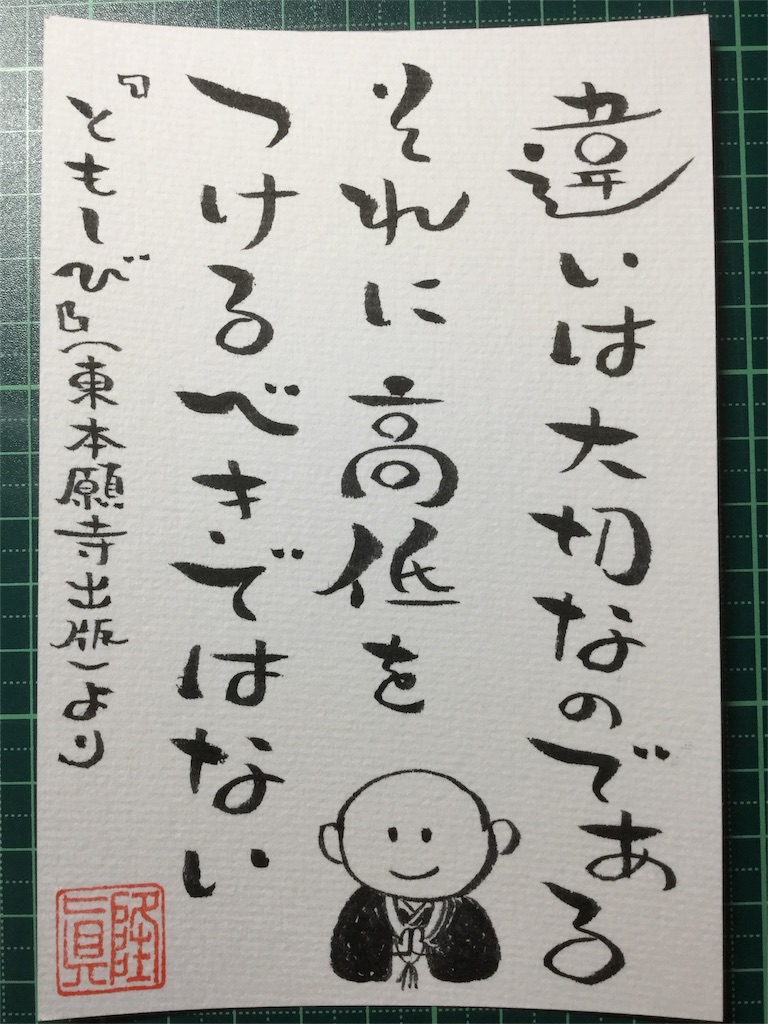 違いは大切なのである
それに高低を
つけるべきではない
『ともしび』(東本願寺出版)より
隆真